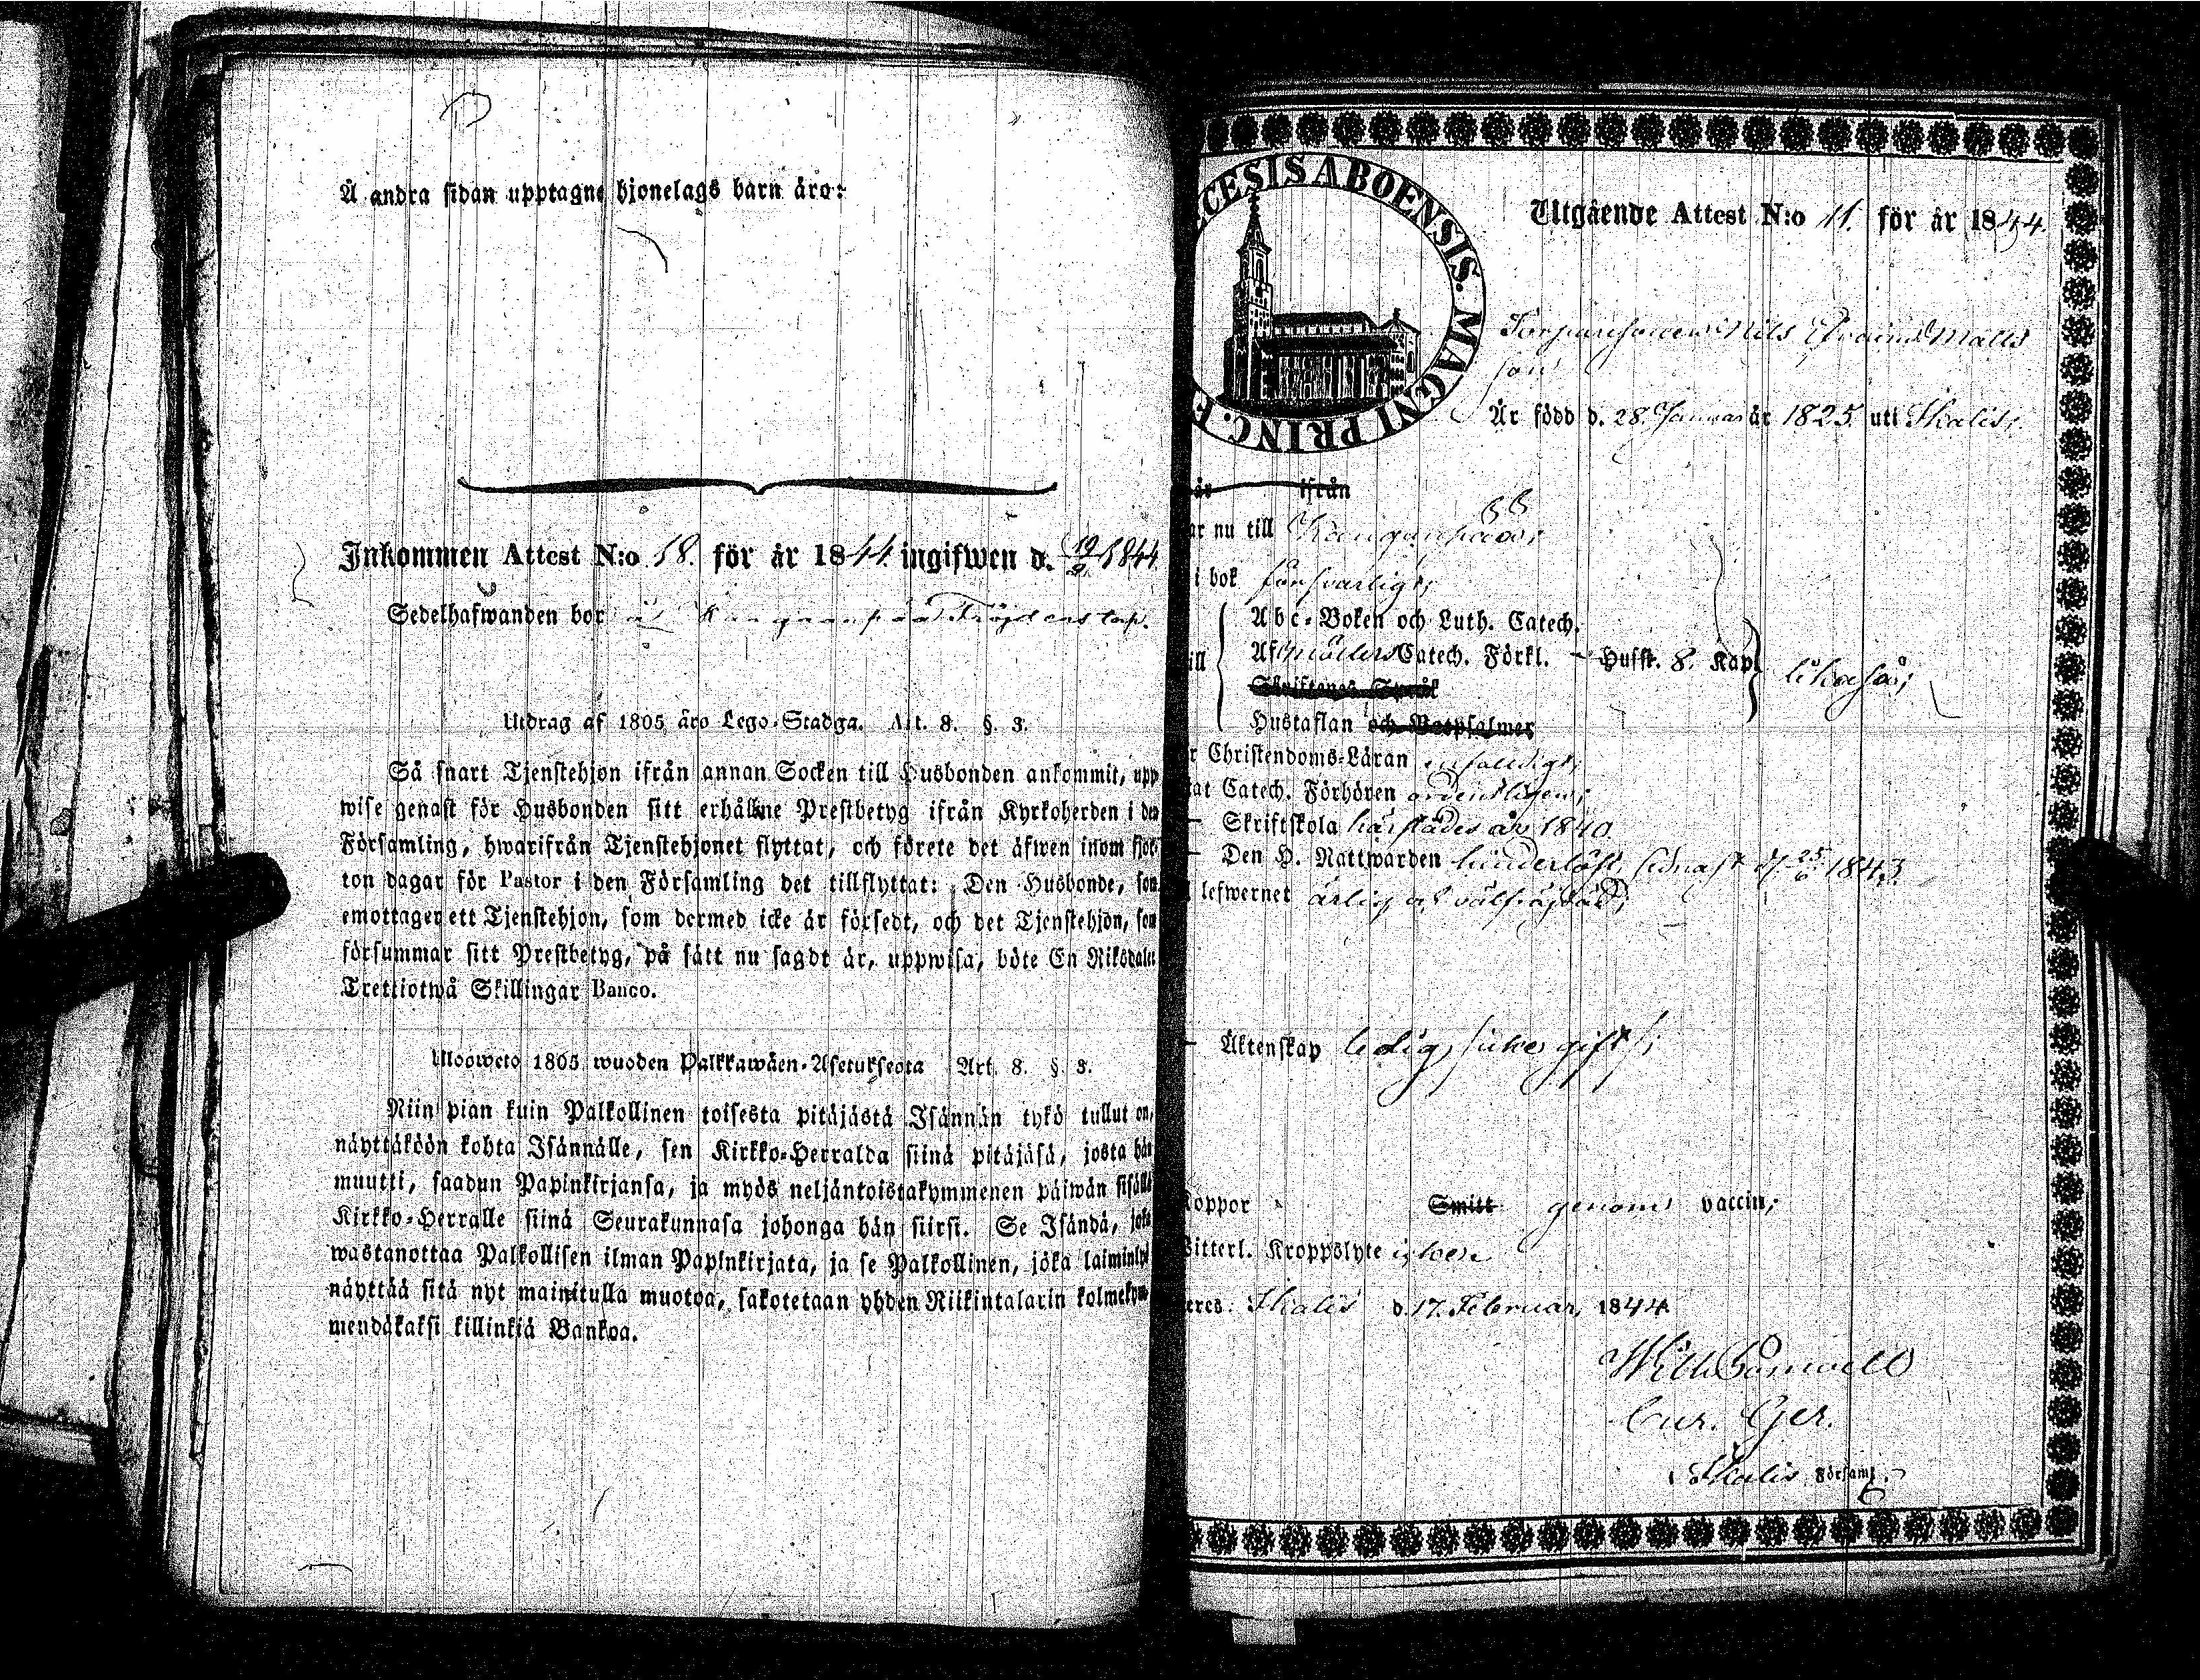 Å andra sidan upptagne hjonelags barn äro:
Inkommen Attest N:o 58. för år 1844. ingifwen d. 19/2 1844
Sedelhafwanden bor
Utdrag af 1805 åro Lego-Stadga. Art. 8. §. 3.
Så snart Tjenstehjon ifrån annan Socken till Husbonden ankommit, upp
wise genast för Husbonden sitt erhållne Prestbetyg ifrån Kyrkoherden i den
Församling, hwarifrån Tjenstehjonet flyttat, och förete det äfwen inom fjor
ton dagar för Pastor i den Församling det tillflyttat: Den Husbonde, som
emottager ett Tjenstehjon, som dermed icke är försedt, och det Tjenstehjon, som
försummar sitt Prestbetyg, på sätt nu sagdt är, uppwisa, böte En Riksdaler
Trettiotwå Skillingar Banco.
Ulosweto 1805 wuoden Palkkawäen-Asetuksesta Art. 8. § 3.
Niin pian kuin Palkollinen toisesta pitäjästä Isännän tykö tullut on,
näyttäköön kohta Isännälle, sen Kirkko-Herralda siinä pitäjäsä, josta hän
muutti, saadun Papinkirjansa, ja myös neljäntoistakymmenen päiwän sisälle
Kirkko-Herralle siinä Seurakunnasa johonga hän siirsi. Se Isändä, joka
wastanottaa Palkollisen ilman Papinkirjata, ja se Palkollinen, joka laiminlyö
näyttää sitä nyt mainitulla muotoa, sakotetaan yhden Riikintalarin kolmekym-
mendäkaksi killinkiä Bankoa.
CESIS ABOENSIS. MAGNI PRINC. F
Utgående Attest N:o 11. för år 1844.
Torparesonen Nils Efraim Matts
son
Är född d. 28. Januari år 1825. uti Skalis,
år ifrån
ar nu till Kanganpää,
i bok försvarligt,
Abc-Boken och Luth. Catech.
ill Af Möllers Catech. Förkl. - Husst. 8. Kap. likaså;
Skriftenes Språk
Hustaflan och Botpsalmer
r Christendoms-Läran enfaldigt,
tat Catech. Förhören ordentligen;
Skriftskola härstädes år 1840.
Den H. Nattwarden hinderlöst, sednast d. 25/6 1843.
lefwernet ärlig och välfrägdad;
Äktenskap ledig, (icke gift);
Koppor Smitt genom vaccin;
Witterl. Kroppslyte icke
eres. Skalis d. 17. Februar, 1844.
Cur. Ger.
i Skalis Församl.